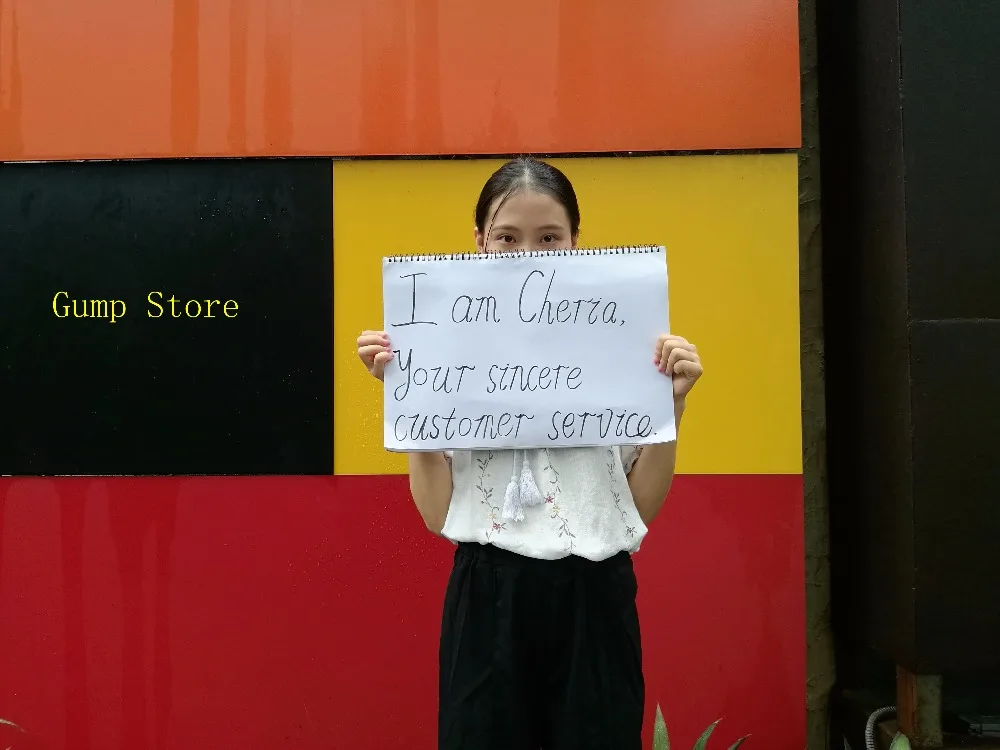 Gump Store
I am Cherra,
Your sincere
customer service.